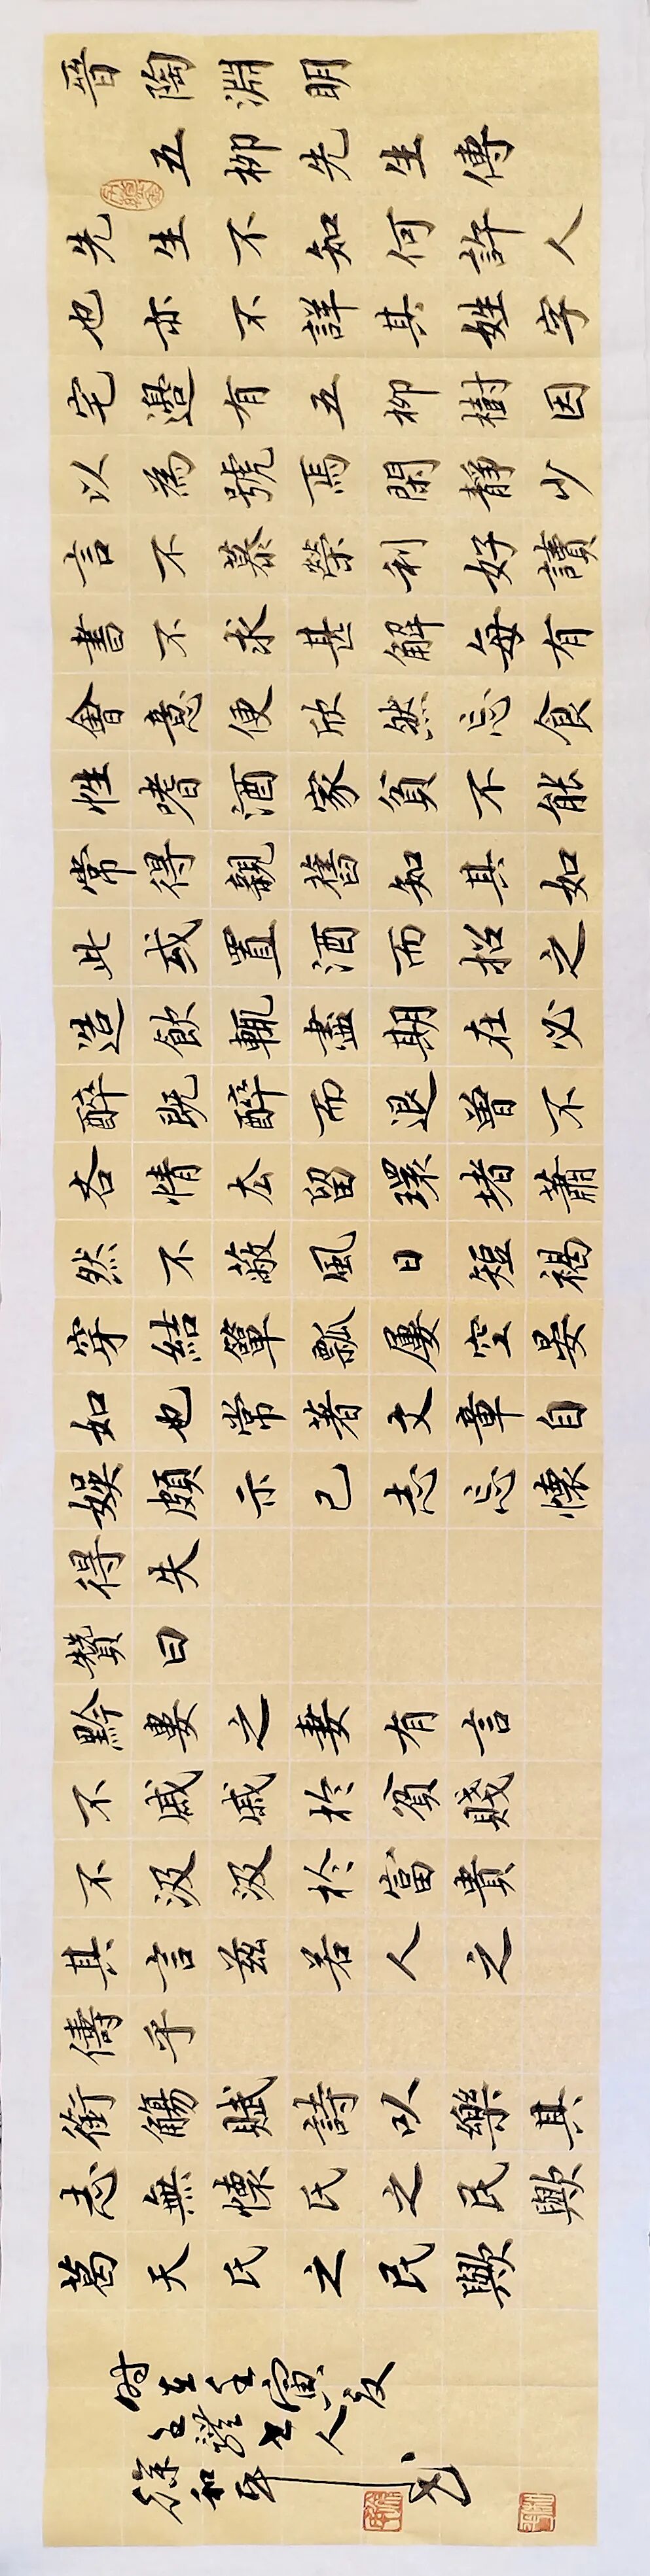 晉陶淵明
五柳先生傳
先生不知何許人
也亦不詳其姓字
宅邊有五柳樹因
以為號焉閑靜少
言不慕榮利好讀
書不求甚解每有
會意便欣然忘食
性嗜酒家貧不能
常得親舊知其如
此或置酒而招之
造飲輒盡期在必
醉既醉而退曾不
吝情去留環堵蕭
然不蔽風日短褐
穿結簞瓢屢空晏
如也常著文章自
娛頗示己志忘懷
得失
贊曰
黔婁之妻有言
不戚戚於貧賤
不汲汲於富貴
其言茲若人之
儔乎
銜觴賦詩以樂其
志無懷氏之民歟
葛天氏之民歟
时在壬寅夏
徐和平书